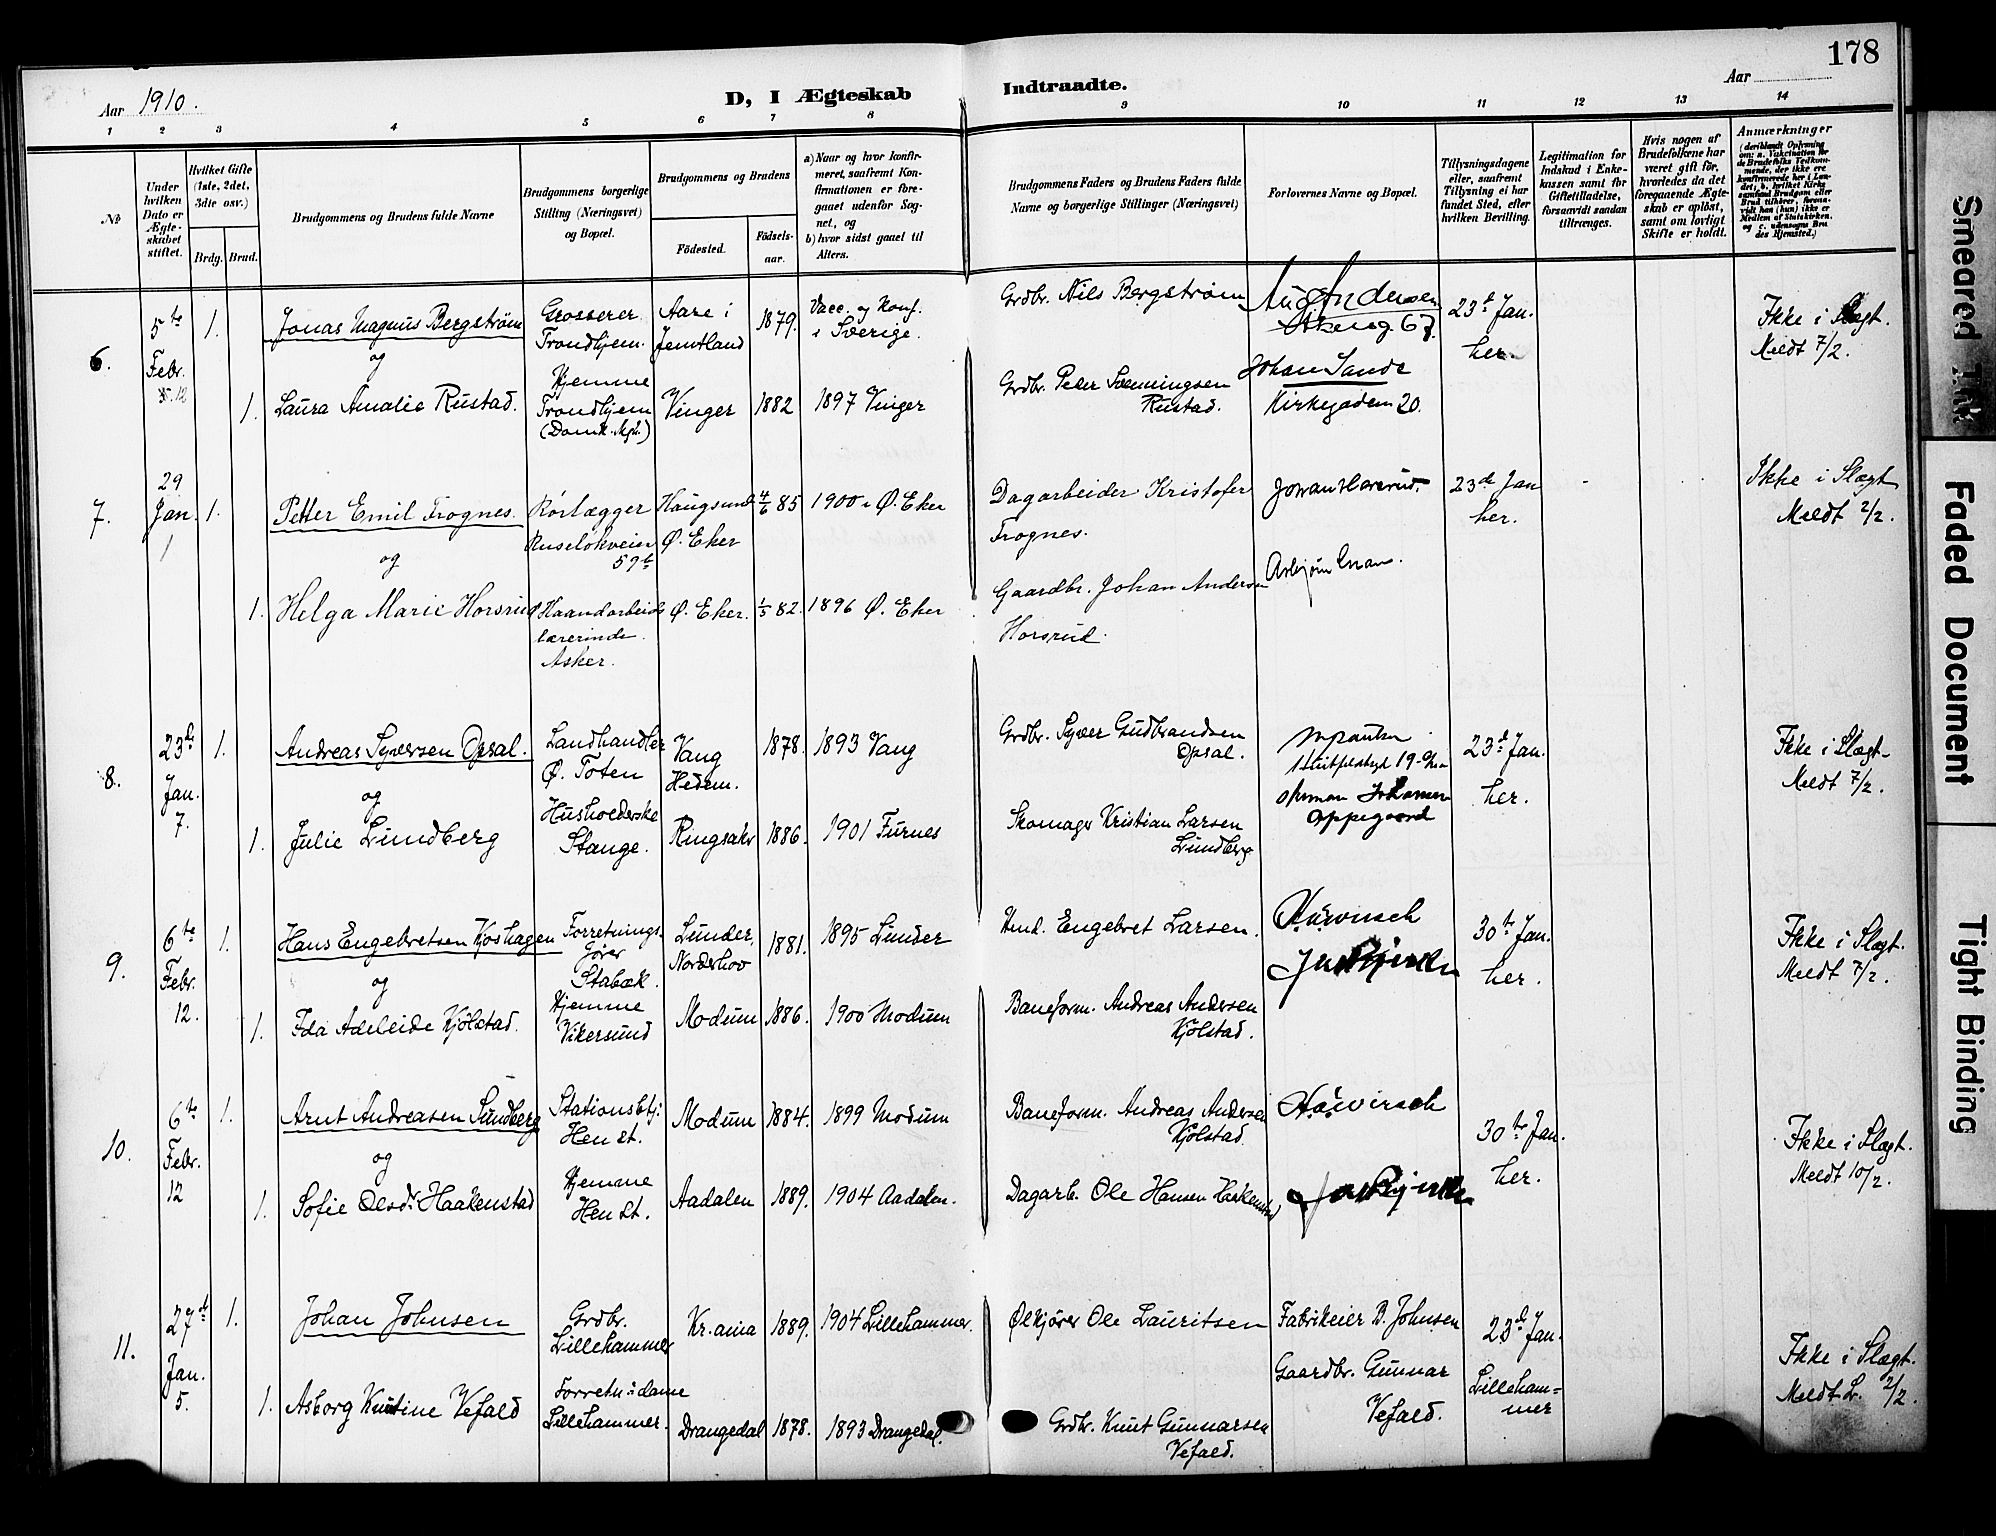 178
Aar 1910.
D, I Ægteskab Indtraadte.
Aar
1 2 3 4 5 6 7 8 9 10 11 12 13 14
№
Under hvilken Dato er Ægteskabet stiftet.
Hvilket Gifte (1ste, 2det, 3die osv.)
Brdg. Brud.
Brudgommens og Brudens fulde Navne
Brudgommens borgerlige Stilling (Næringsvei) og Bopæl.
Brudgommens og Brudens
Födested.
Födselsaar.
a) Naar og hvor konfirmeret, saafremt Konfirmationen er foregaaet udenfor Sognet, og
b) hvor sidst gaaet til Alters.
Brudgommens Faders og Brudens Faders fulde Navne og borgerlige Stillinger (Næringsvei)
Forlovernes Navne og Bopæl.
Tillysningsdagene eller, saafremt Tillysning ei har fundet Sted, efter hvilken Bevilling.
Legitimation for Indskud i Enkekassen samt for Giftetilladelse, forsaavidt saadan tiltrænges.
Hvis nogen af Brudefolkene har været gift før, hvorledes da det foregaaende Ægteskab er oplöst, samt om lovligt Skifte er holdt.
Anmærkninger
(deriblandt Oplysning om: a. Vakcination for de Brudefolks Vedkommende, der ikke ere konfirmerede her i Landet; b. hvilket Kirkesamfund Brudgom eller Brud tilhører, forsaavidt han (hun) ikke er Medlem af Statskirken, og c. udensogns Brudes Hjemsted.)
6.
5te Febr.
1.
Jonas Magnus Bergström
og
Grosserer Trondhjem.
Aare i Jemtland
1879.
Vacc. og Konf. i Sverige.
Grdbr. Nils Bergström
Aug Andersen
67.
23d Jan. her.
Ikke i Slægt.
Meldt 7/2.
1.
Laura Amalie Rustad.
Hjemme Trondhjem
Vinger
1882
1897 Vinger
Grdbr. Peder Svenningsen Rustad.
Johan Sande
Kirkegaden 20.
7.
29 Jan.
1
1.
Petter Emil Frognes.
og
Rørlægger
Ruseløkveien
Haugsund Ø. Eker
4/6 85
1900 i Ø. Eker
Dagarbeider Kristofer Frognes.
Johan Horsrud.
23de Jan her.
Ikke i Slægt
Meldt 2/2.
1.
Helga Marie Horsrud
Haandarbeidslærerinde. Asker.
Ø. Eker.
1/5 82.
1896 Ø. Eker
Gaardbr. Johan Andersen Horsrud.
8.
23de Jan.
7.
1.
Andreas Syversen Opsal.
og
Landhandler Ø. Toten
Vang Hedem.
1878.
1893 Vang
Grdbr. Syver Gudbrandsen Opsal.
23d Jan. her.
Ikke i Slægt.
Meldt 7/2.
1.
Julie Lundberg
Husholderske Stange.
Ringsaker
1886.
1901 Furnes
Skomager Kristian Larsen Lundberg
Oppegaard
9.
6te Febr.
12.
1.
Hans Engebretsen Kjoshagen
og
Forretningsfører Stabæk.
Lunder, Norderhov
1881.
1895 Lunder
Engebret Larsen.
30te Jan. her.
Ikke i Slægt.
Meldt 7/2.
1.
Ida Adeleide Kjölstad.
Hjemme Vikersund
Modum
1886.
1900 Modum
Baneform. Andreas Andersen Kjölstad.
10.
6te Febr.
12
1.
Arnt Andreasen Sundberg
og
Stationsbtj: Hen st.
Modum
1884.
1899 Modum
Baneform. Andreas Andersen Kjölstad
30te Jan. her.
Ikke i Slægt.
Meldt 10/2.
1.
Sofie Olsdr. Haakenstad
Hjemme Hen st.
Aadalen
1889.
1904 Aadalen.
Dagarb. Ole Hansen Haakenstad
11.
27d Jan.
5.
1.
Johan Johnsen
Grdbr. Lillehammer
Kr.ania
1889.
1904 Lillehammer.
Ølkjörer Ole Lauritsen
Fabrikeier B. Johnsen
23d Jan. Lillehammer
Ikke i Slægt.
Meldt L. 2/2.
1.
Asborg Kristine Vefald
Forretn:sdame Lillehammer.
Drangedal
1878.
1893 Drangedal.
Grdbr. Knut Gunnarsen Vefald.
Gaardbr. Gunnar Vefald.
Smeared Ink
Faded Document
Tight Binding